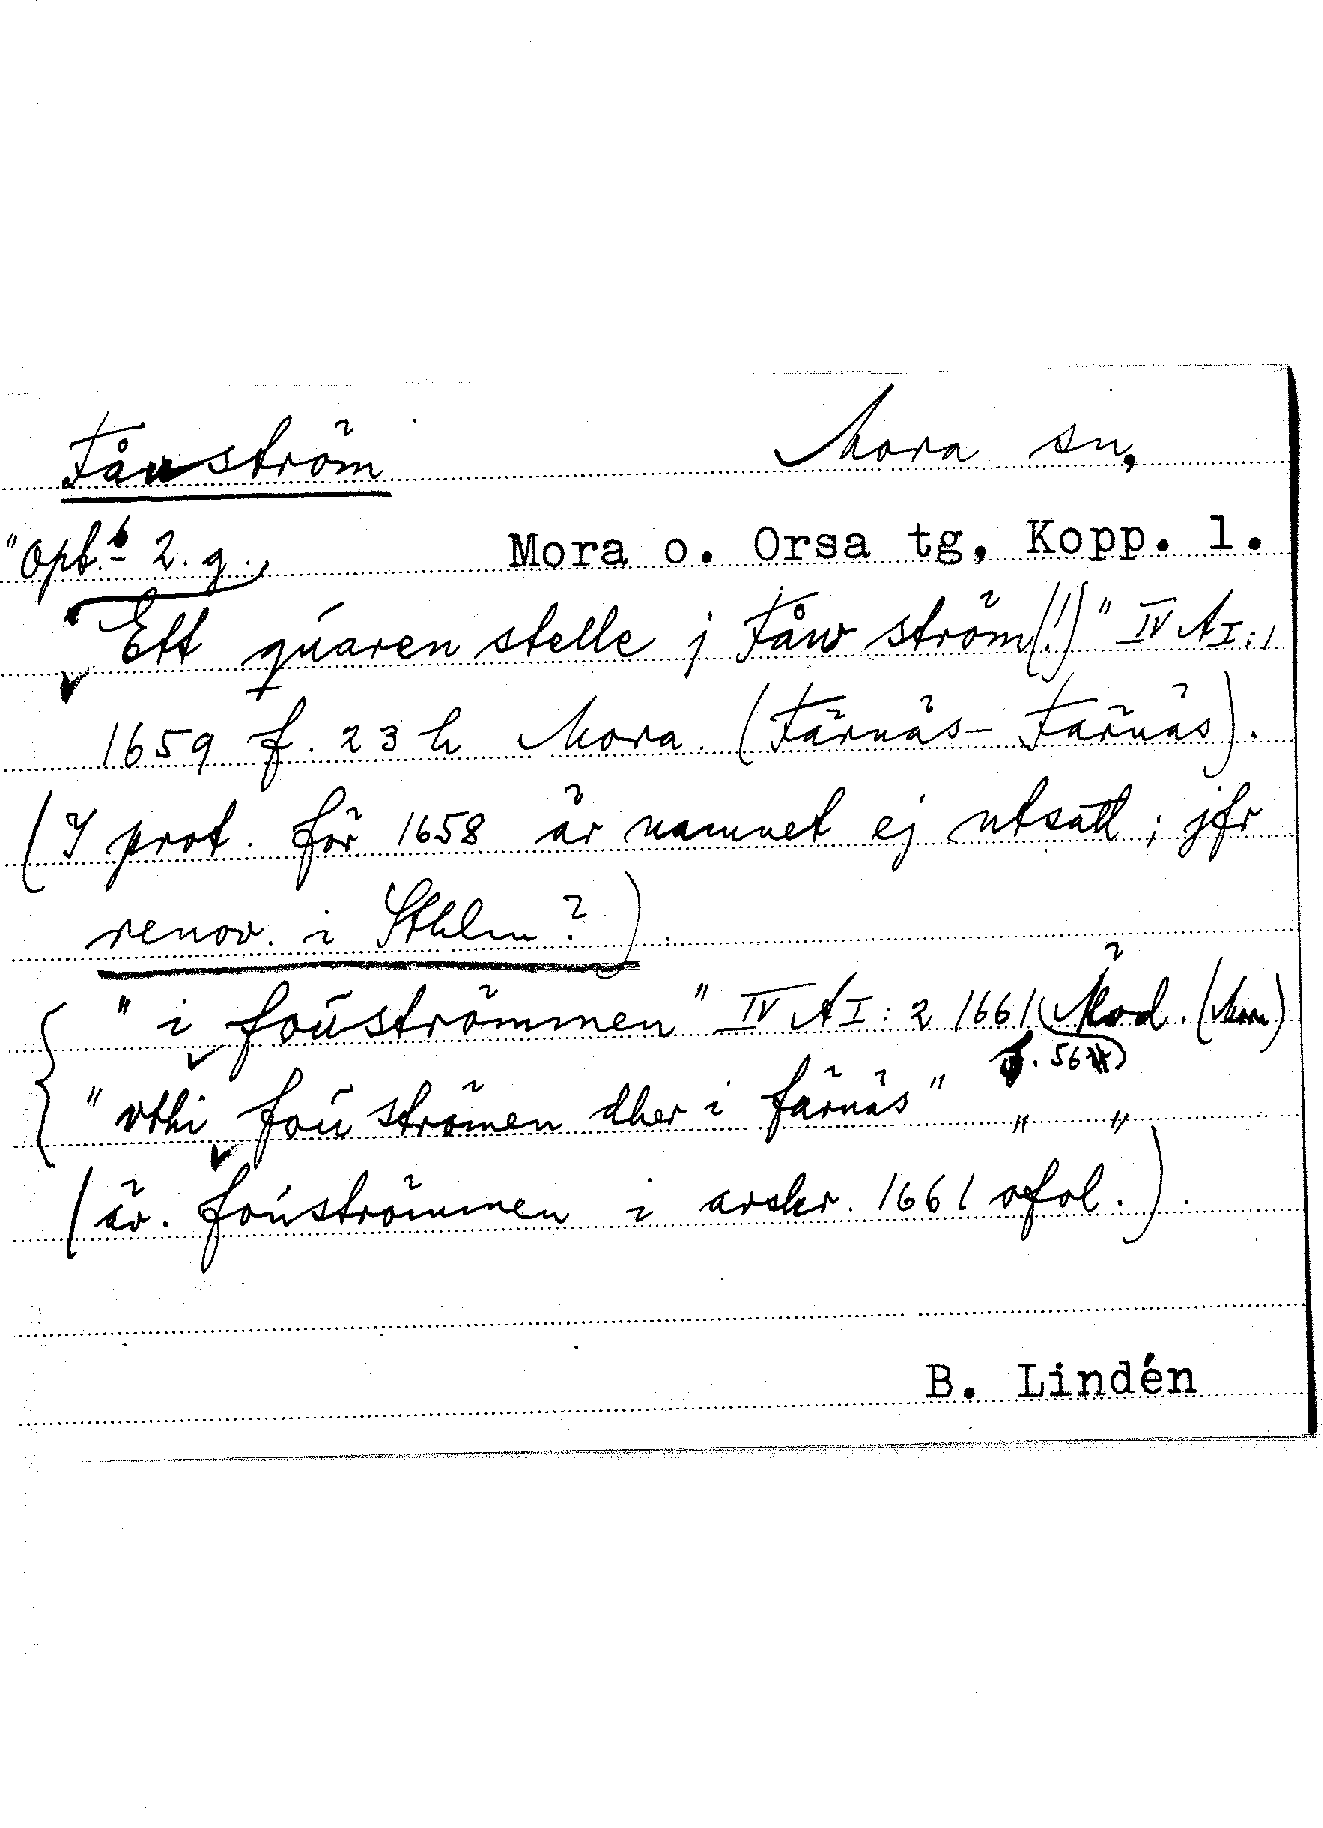 Fåwström Mora sn,
"Opb. 2. g., Mora o. Orsa tg, Kopp. l.
Ett quaren stelle j Fåw ström (!)" IV AI:1
1659 f. 23 h Mora. (Färnäs - Färnäs).
(I prot. för 1658 är namnet ej utsatt; jfr
renov. i Sthlm?).
"i foúströmmen" IV AI:2 1661 (Mora)
f. 56
"vthi foú strömen dher i färnäs" " "
(äv. foúströmmen i avskr. 1661 ofol.).
B. Lindén